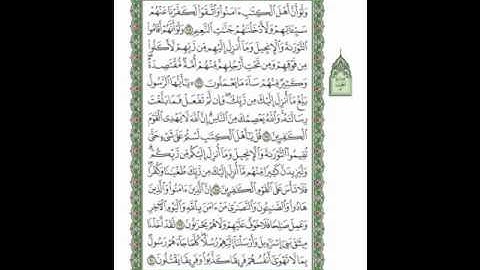 وَلَوْ أَنَّ أَهْلَ الْكِتَٰبِ ءَامَنُوا۟ وَاتَّقَوْا۟ لَكَفَّرْنَا عَنْهُمْ
سَيِّـَٔاتِهِمْ وَلَأَدْخَلْنَٰهُمْ جَنَّٰتِ النَّعِيمِ ۝٦٥ وَلَوْ أَنَّهُمْ أَقَامُوا۟
التَّوْرَىٰةَ وَالْإِنجِيلَ وَمَآ أُنزِلَ إِلَيْهِم مِّن رَّبِّهِمْ لَأَكَلُوا۟
مِن فَوْقِهِمْ وَمِن تَحْتِ أَرْجُلِهِم مِّنْهُمْ أُمَّةٌ مُّقْتَصِدَةٌ
وَكَثِيرٌ مِّنْهُمْ سَآءَ مَا يَعْمَلُونَ ۝٦٦ يَٰٓأَيُّهَا الرَّسُولُ
بَلِّغْ مَآ أُنزِلَ إِلَيْكَ مِن رَّبِّكَ وَإِن لَّمْ تَفْعَلْ فَمَا بَلَّغْتَ
رِسَالَتَهُۥ وَاللَّهُ يَعْصِمُكَ مِنَ النَّاسِ إِنَّ اللَّهَ لَا يَهْدِى الْقَوْمَ
الْكَٰفِرِينَ ۝٦٧ قُلْ يَٰٓأَهْلَ الْكِتَٰبِ لَسْتُمْ عَلَىٰ شَىْءٍ حَتَّىٰ
تُقِيمُوا۟ التَّوْرَىٰةَ وَالْإِنجِيلَ وَمَآ أُنزِلَ إِلَيْكُم مِّن رَّبِّكُمْ
وَلَيَزِيدَنَّ كَثِيرًا مِّنْهُم مَّآ أُنزِلَ إِلَيْكَ مِن رَّبِّكَ طُغْيَٰنًا وَكُفْرًا
فَلَا تَأْسَ عَلَى الْقَوْمِ الْكَٰفِرِينَ ۝٦٨ إِنَّ الَّذِينَ ءَامَنُوا۟ وَالَّذِينَ
هَادُوا۟ وَالصَّٰبِـُٔونَ وَالنَّصَٰرَىٰ مَنْ ءَامَنَ بِاللَّهِ وَالْيَوْمِ الْءَاخِرِ
وَعَمِلَ صَٰلِحًا فَلَا خَوْفٌ عَلَيْهِمْ وَلَا هُمْ يَحْزَنُونَ ۝٦٩ لَقَدْ أَخَذْنَا
مِيثَٰقَ بَنِىٓ إِسْرَٰٓءِيلَ وَأَرْسَلْنَآ إِلَيْهِمْ رُسُلًا كُلَّمَا جَآءَهُمْ رَسُولٌۢ
بِمَا لَا تَهْوَىٰٓ أَنفُسُهُمْ فَرِيقًا كَذَّبُوا۟ وَفَرِيقًا يَقْتُلُونَ ۝٧٠